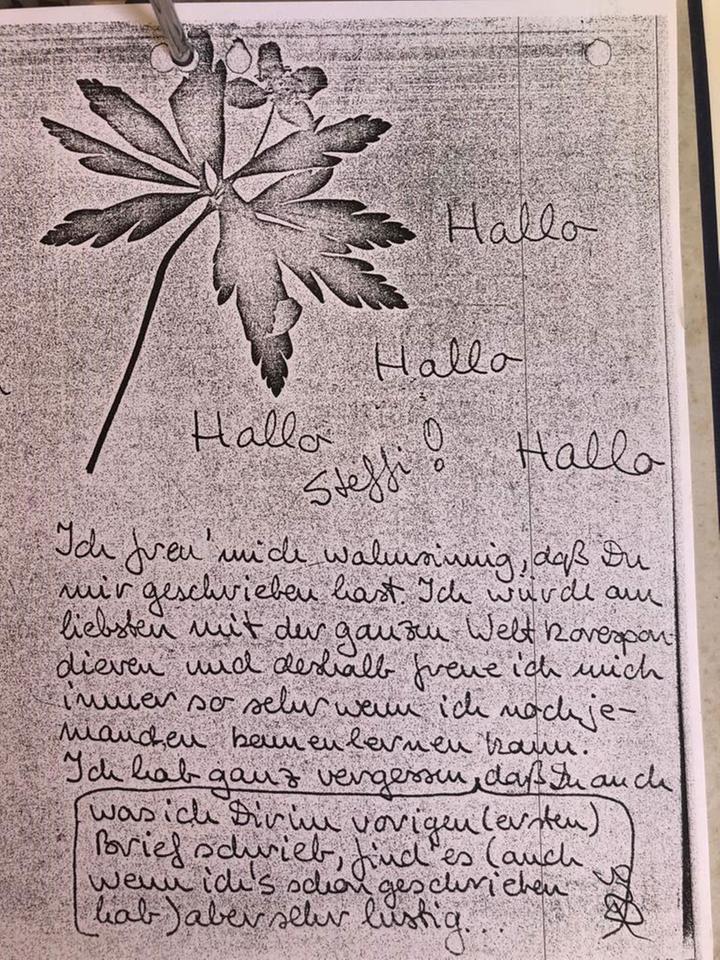 Hallo
Hallo
Hallo
Steffi!
Hallo
Ich freu' mich wahnsinnig, daß Du
mir geschrieben hast. Ich würde am
liebsten mit der ganzen Welt korespon-
dieren und deshalb freue ich mich
immer so sehr wenn ich noch je-
manden kennenlernen kann.
Ich hab ganz vergessen, daß Du auch
was ich Dir im vorigen (ersten)
Brief schrieb, find' es (auch
wenn ich's schon geschrieben
hab) aber sehr lustig...